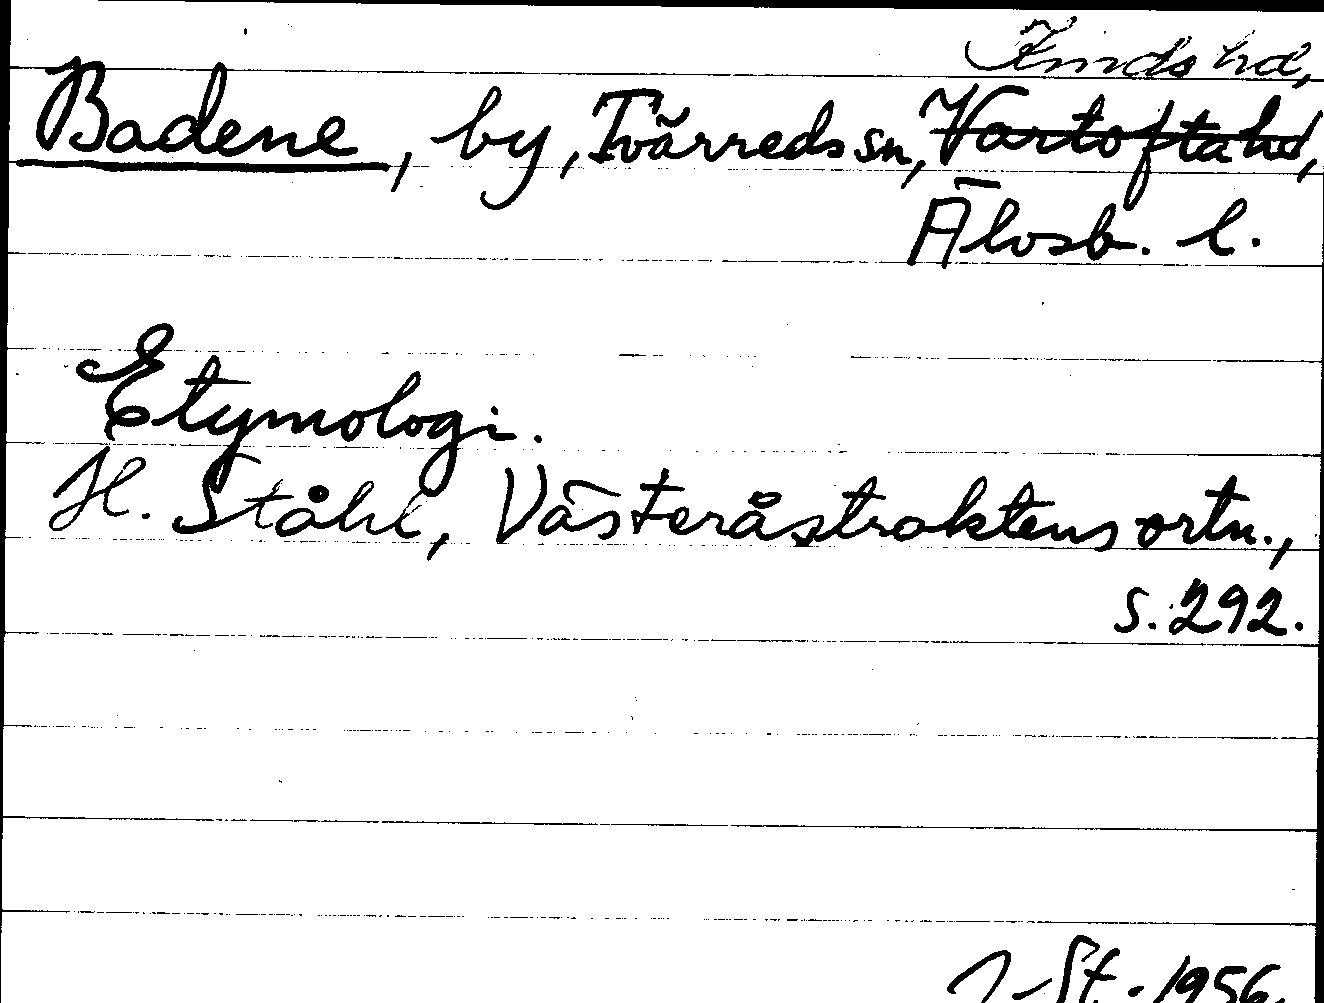 Kinds hd,
Badene, by, Tvärreds sn, Vartofta hd,
Älvsb. l.
Etymologi.
H. Ståhl, Västeråstraktens ortn.,
s. 292.
St. 1956.